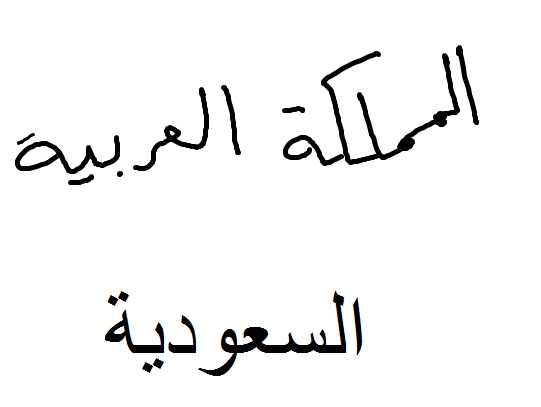 المملكة العربية
السعودية